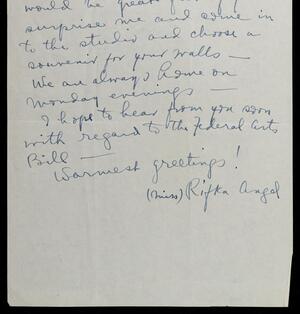 would be
surprise me and come in
to the studio and choose a
souvenir for your walls —
We are always home on
Monday evenings —
I hope to hear from you soon
with regard to the Federal Arts
Bill —
Warmest greetings!
(Miss) Rifka Angel